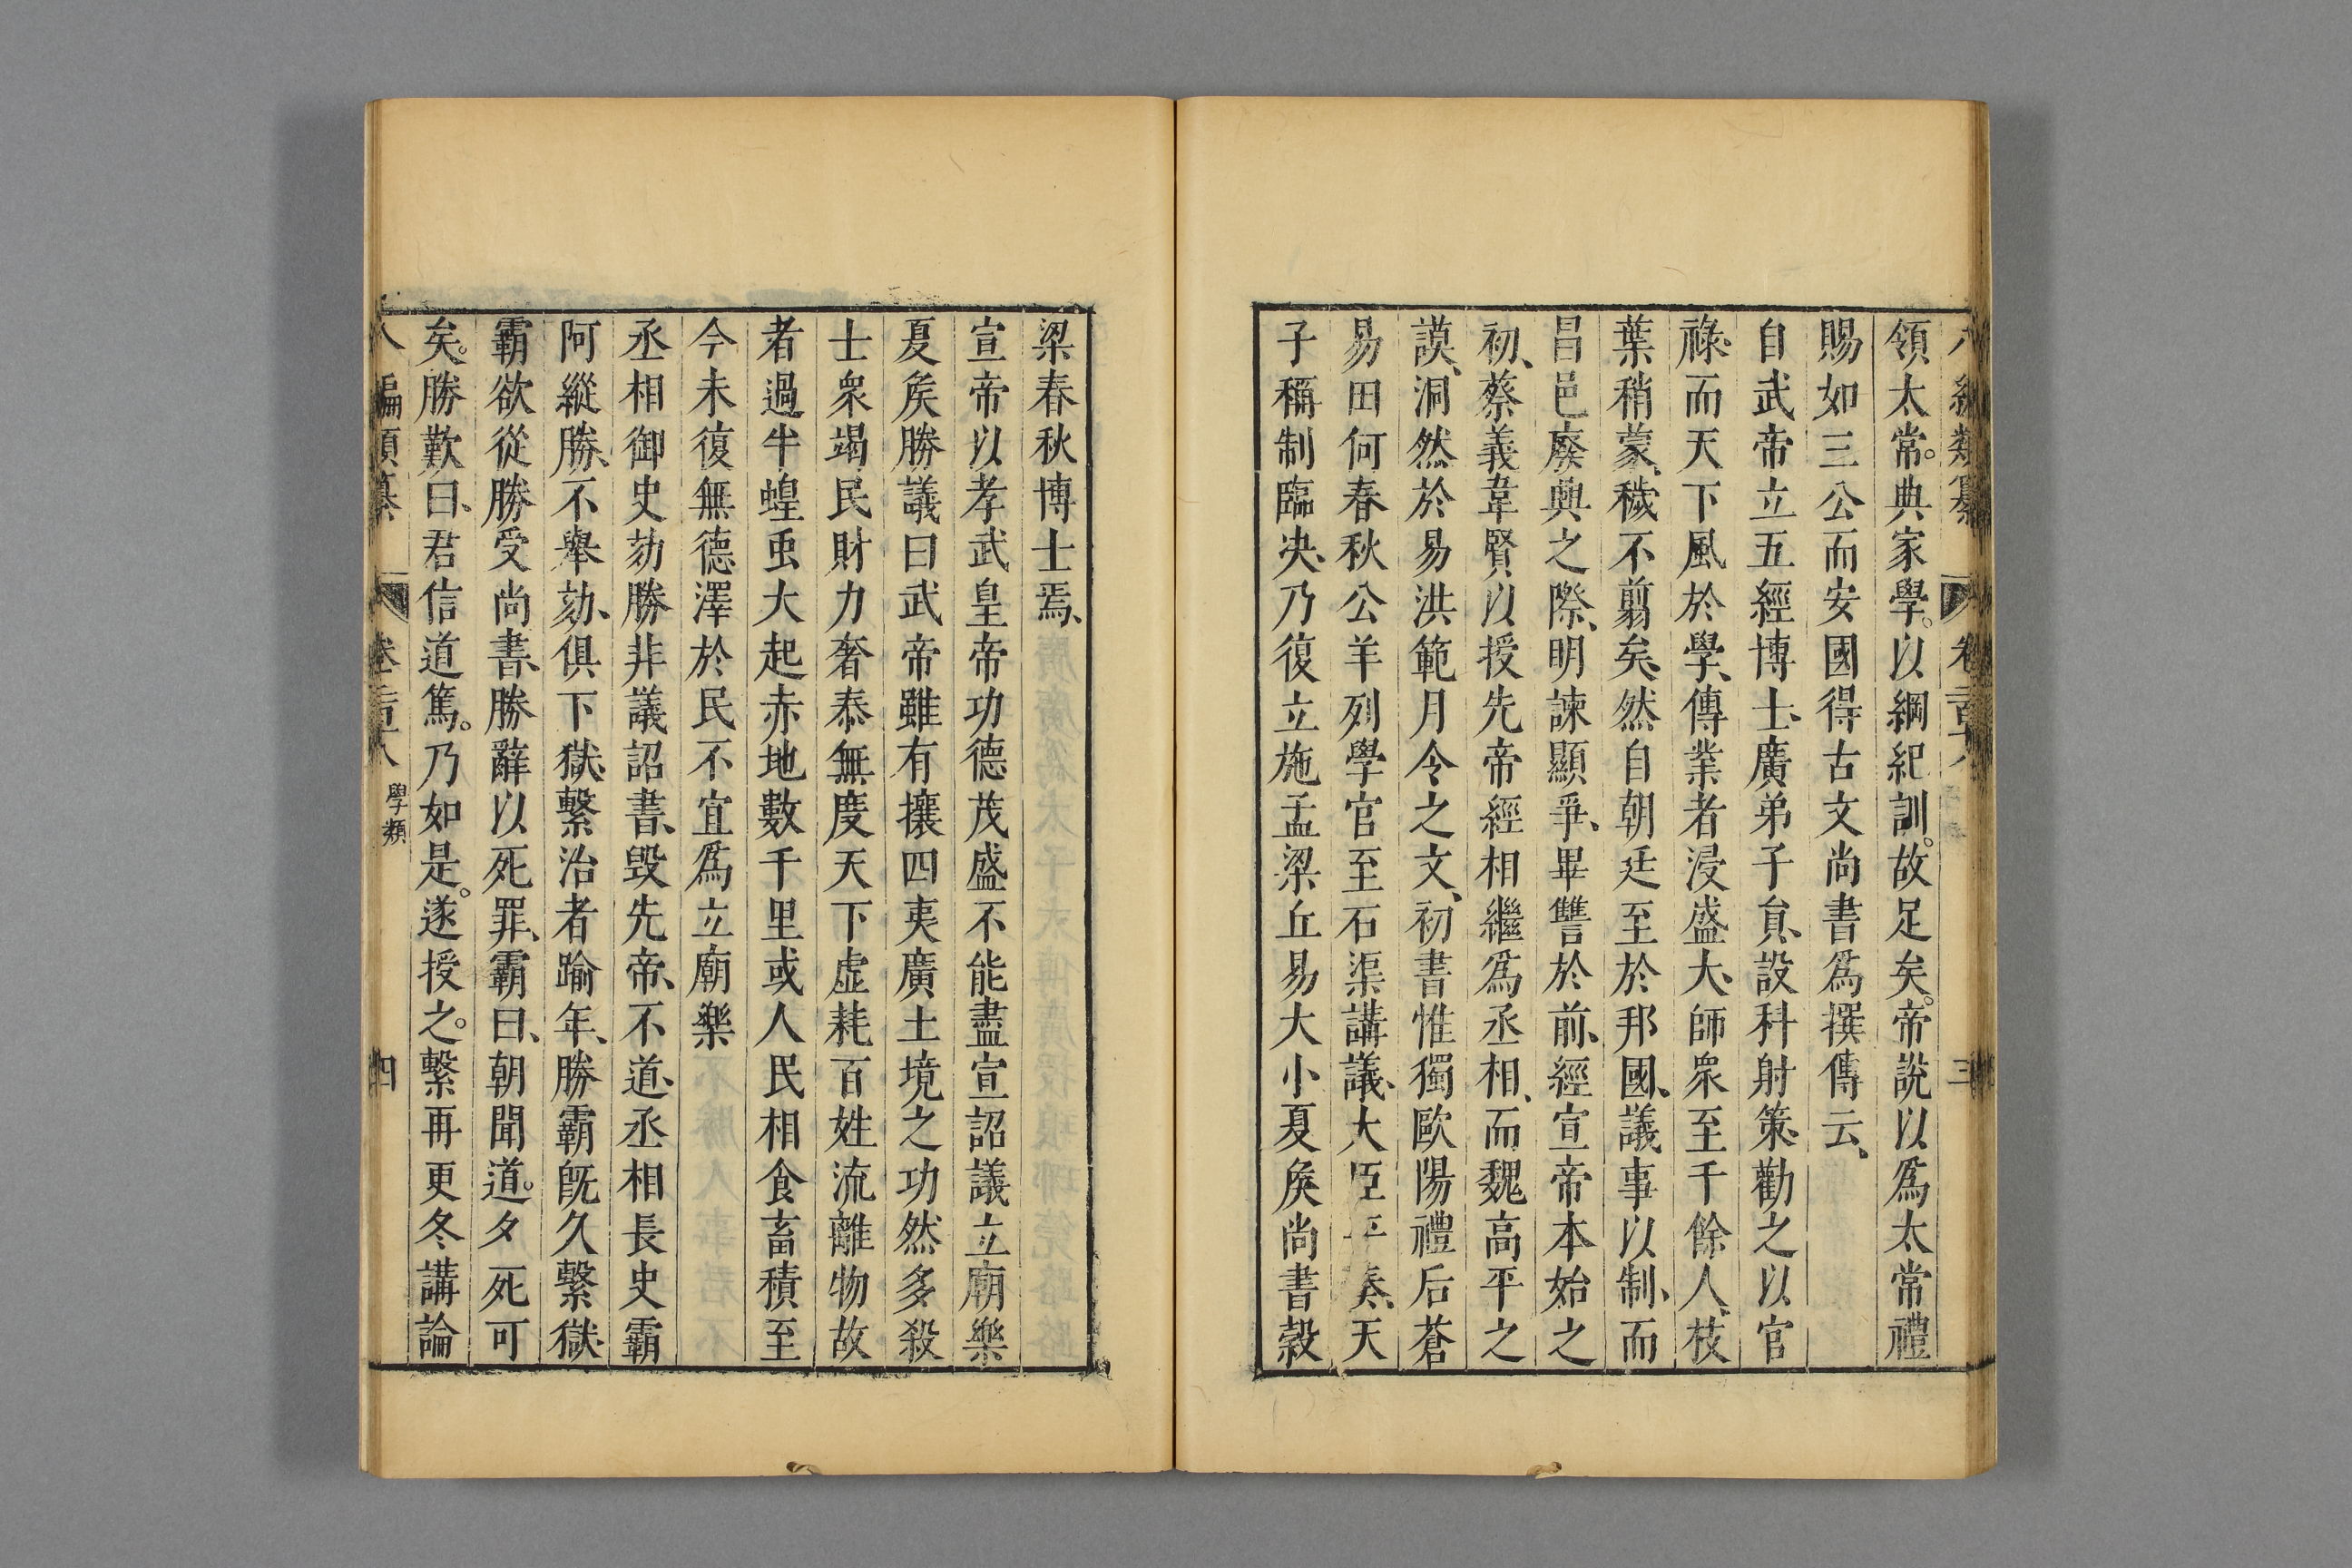 領太常。典家學。以綱紀訓。故足矣。帝說以爲太常禮
賜如三公而安國得古文尚書爲撰傳云、
自武帝立五經博士、廣弟子貟、設科射策、勸之以官
祿、而天下風於學、傳業者浸盛大、師衆至千餘人、枝
葉稍蒙、穢不翦矣、然自朝廷至於邦國、議事以制、而
昌邑廢興之際、明諫顯爭、畢讐於前、經宣帝本始之
初、蔡義韋賢以授先帝經相繼爲丞相、而魏高平之
謨、洞然於易洪範月令之文、初書惟獨歐陽禮后蒼
易田何春秋公羊列學官至石渠講議、大臣平奏、天
子稱制臨决、乃復立施孟梁丘易大小夏矦尚書穀
梁春秋博士焉、
宣帝以孝武皇帝功德茂盛不能盡宣詔議立廟樂
夏矦勝議曰武帝雖有攘四夷廣土境之功然多殺
士衆竭民財力奢泰無度天下虛耗百姓流離物故
者過半蝗虫大起赤地數千里或人民相食畜積至
今未復無德澤於民不宜爲立廟樂
丞相御史劾勝非議詔書、毀先帝、不道、丞相長史霸
阿縱勝、不舉劾、俱下獄、繫治者踰年、勝霸旣久繫獄、
霸欲從勝受尚書、勝辭以死罪、霸曰、朝聞道。夕死可
矣。勝歎曰、君信道篤。乃如是。遂授之。繫再更冬講論
編類纂 卷 學類 四